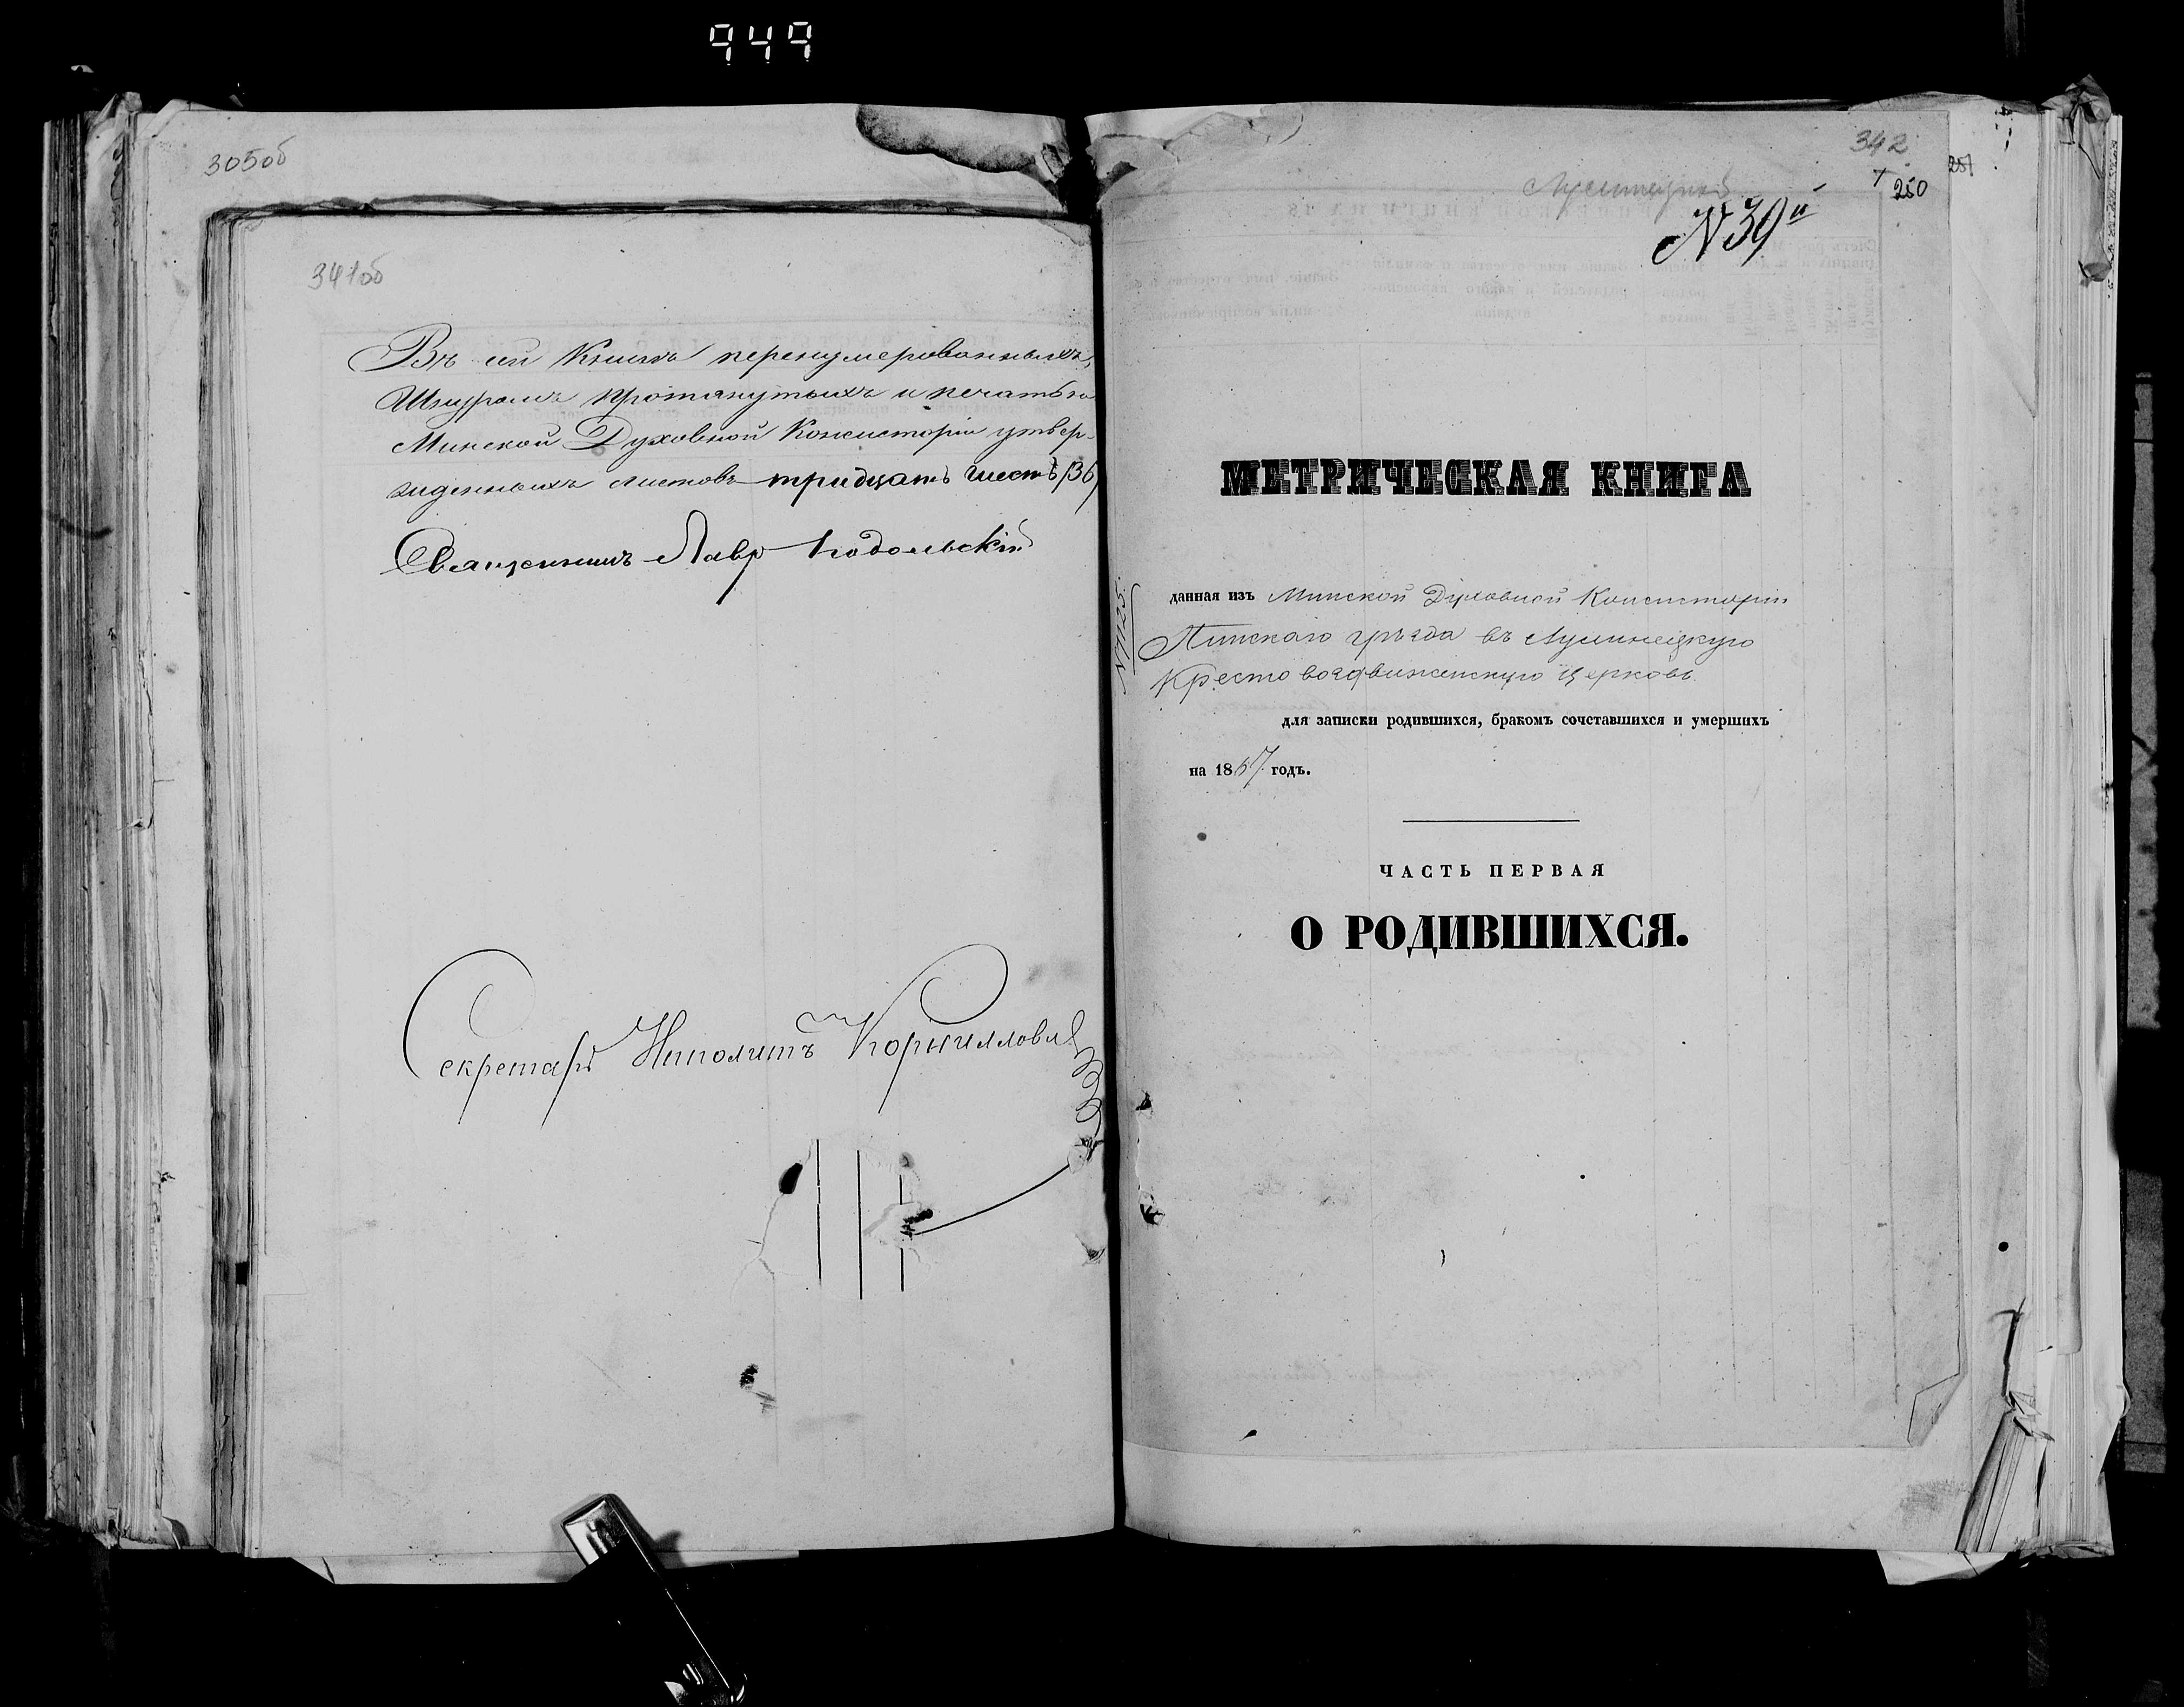 949
305об
341об
Въ сей Книгѣ перенумерованныхъ,
Шнуромъ протянутыхъ и печатью
Минской Духовной Консисторіи утвер-
жденныхъ листовъ тридцать шесть (36)
Священникъ Лавр Подольскій
Секретарь Ипполитъ Корнилловичъ
342
251
1
250
N 39й
МЕТРИЧЕСКАЯ КНИГА
данная изъ Минской Духовной Консисторіи
Пинскаго уѣзда въ Лунинецкую
Кресто воздвиженскую Церковь
N 7125.
для записки родившихся, бракомъ сочставшихся и умершихъ
на 1867 годъ.
ЧАСТЬ ПЕРВАЯ
О РОДИВШИХСЯ.